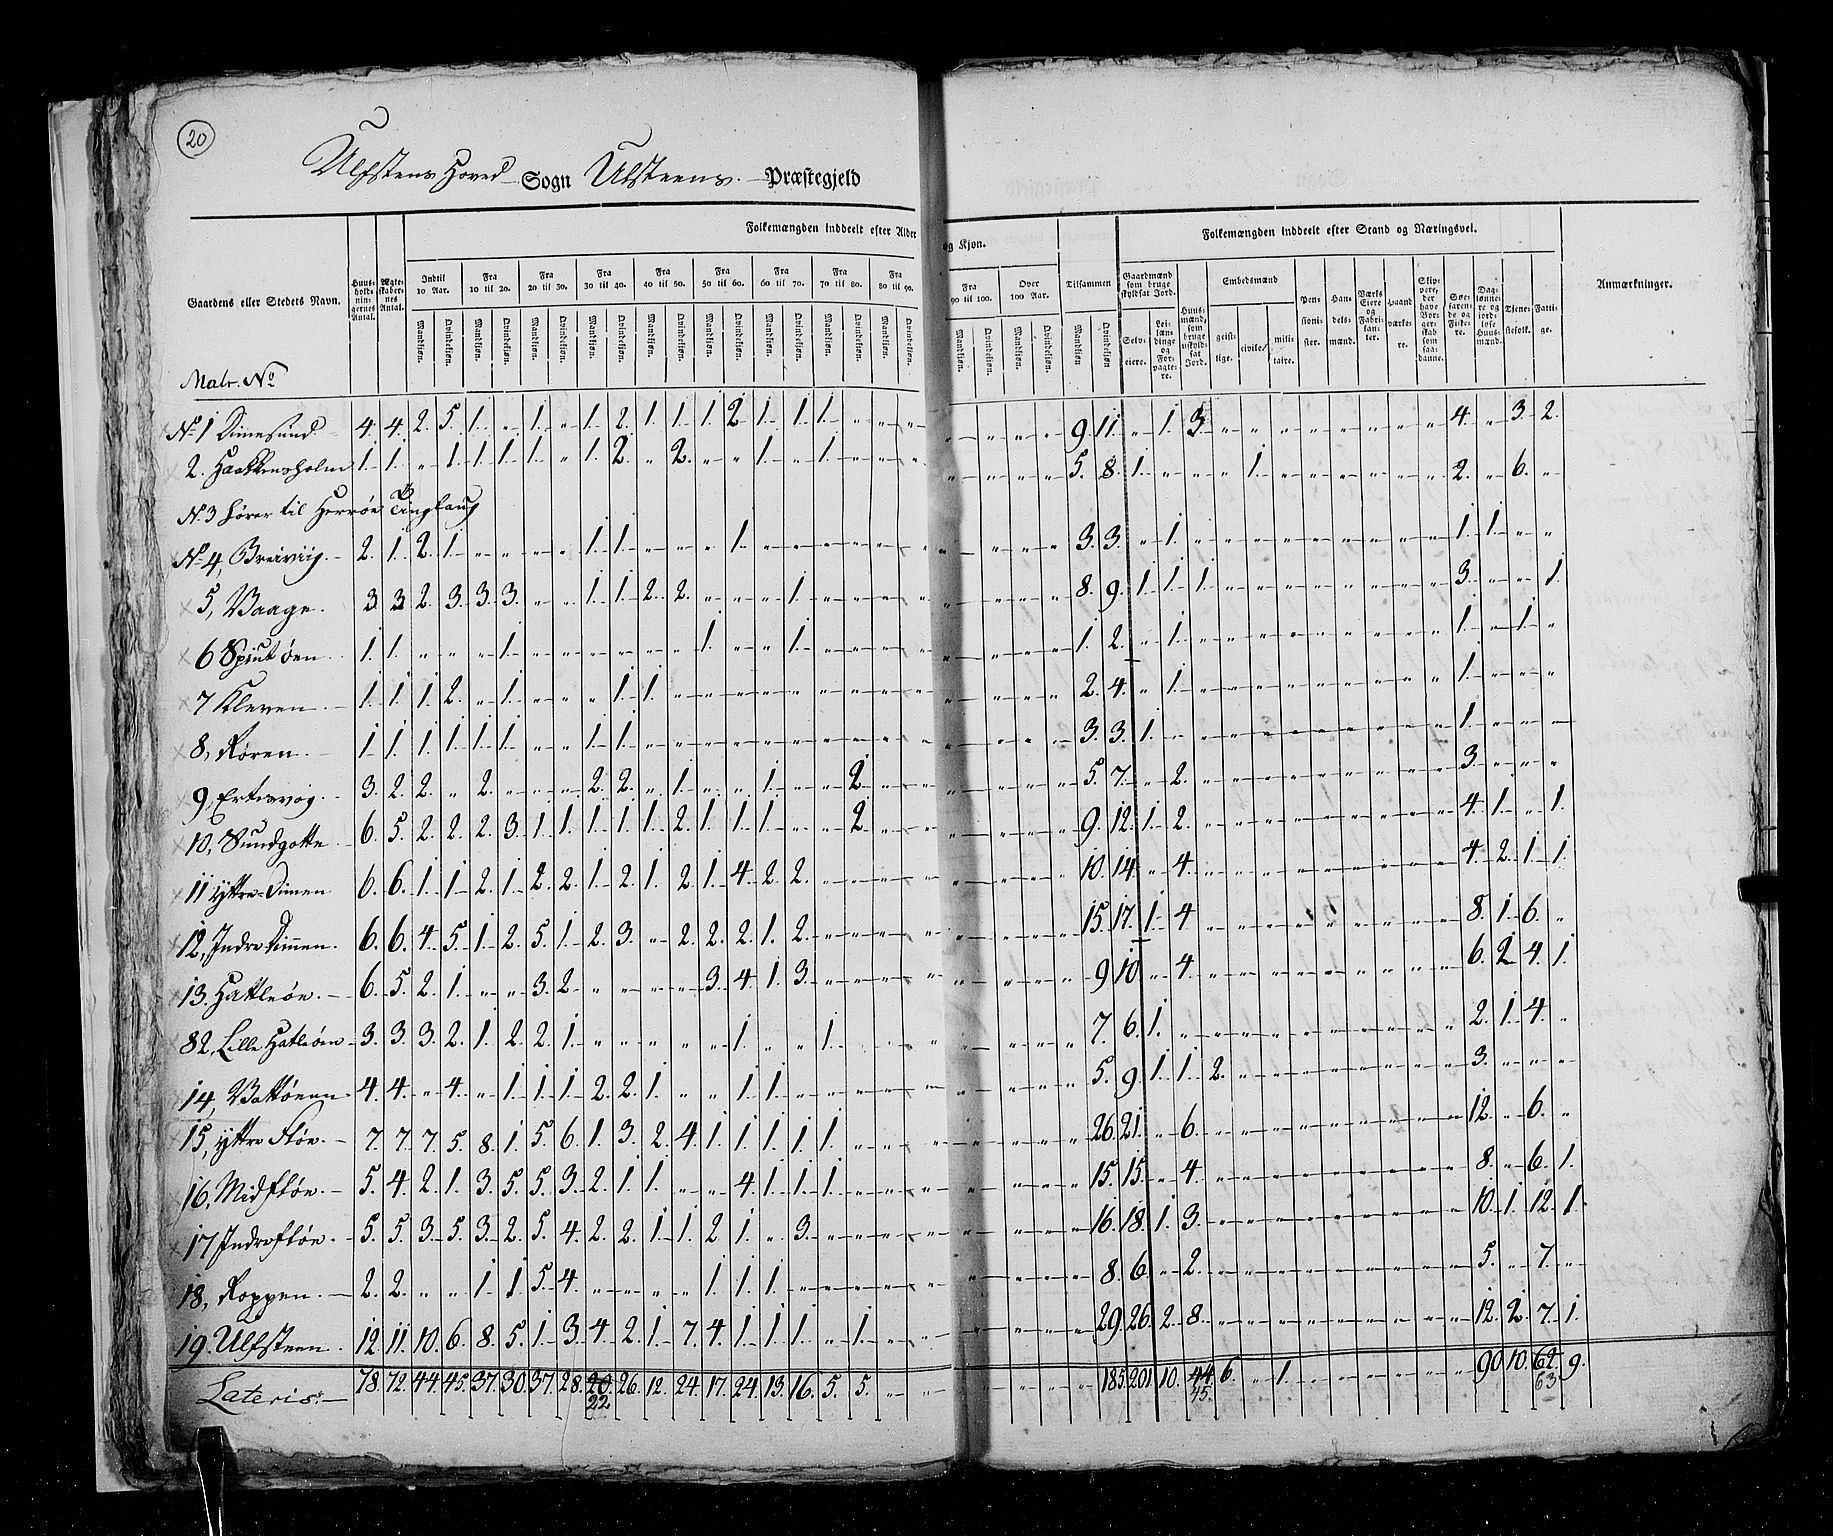 20
Ulfstens Hoved Sogn Ulsteens Præstegjeld
Gaardens eller Stedets Navn. Huus-holdnin-gernes Antal. Ægte-skaber-nes Antal. Folkemængden inddeelt efter Alder og Kjøn. Tilsammen Folkemængden inddeelt efter Stand og Næringsvei. Anmærkninger.
Indtil 10 Aar. Fra 10 til 20. Fra 20 til 30. Fra 30 til 40. Fra 40 til 50. Fra 50 til 60. Fra 60 til 70. Fra 70 til 80. Fra 80 til 90. Fra 90 til 100. Over 100 Aar.
Gaardmænd som bruge skyldsat Jord. Huus-mænd, som bruge uskyld-sat Jord. Embedsmænd Pen-sioni-ster. Han-dels-mænd. Værks Eiere og Fabri-kan-ter. Haand værke-re. Skip-pere, der have Bor-ger-skab som saa-danne. Søe-faren-de og Fiske-re. Dag-lønne-re og jord-løse Huus-mænd. Tjene-stefolk. Fatti-ge.
Mandkjøn. Qvindekjøn.
Selv-eiere. Lei-læn-dinge og For-pagte-re. geist-lige. civile. mili-taire.
Matr. No
No 1 Dimesund 4. 4. 2. 5. 1. „ 1. „ 1. 2. 1. 1. 1. 2. 1. 1. 1. 9. 11. „ 1. 3. 4. „ 3. 2.
2. Haakkensholm 1. 1. „ 1. 1. 1. 1. „ 1. 2. „ 2. „ „ 1. „ 1. 5. 8. 1. 1. 2. „ 6. „
No 3 hører til Herröe Tinglaug
No 4, Breiviig. 2. 1. 2. 1. „ „ „ „ 1. 1. „ „ „ 1. 3. 3. „ 1. 1. 1. „ „
5, Vaage. 3. 3. 2. 3. 3. 3. „ „ 1. 1. 2. 2. „ „ „ 1. 8. 9. 1. 1. 1. 3. „ „ 1.
6 Spiutöen 1. 1. „ „ „ 1. „ „ „ „ „ „ 1. „ „ 1. 1. 2. „ 1. 1. „ 1. „
7 Kleven 1. 1. 1. 2. „ 1. „ „ „ 1. 1. 2. 4. „ 1. 1. „ „ „
8, Røren. 1. 1. 1. 1. 1. 1. „ „ 1. 1. 3. 3. 1. 1. „ „ „
9, Ertesvog. 3. 2. 2. „ 2. „ „ „ 2. 2. „ 1. „ „ 1. „ „ 2. 5. 7. „ 2. 3. „ „ „
10, Sundgotte 6. 5. 2. 2. 2. 3. 1. 1. 1. 1. 1. 2. 1. 1. 1. „ „ 2. 9. 12. 1. 2. 4. 1. „ 1.
11 Yttre-Dimen 6. 6. 1. 1. 2. 1. 2. 2. 1. 2. 1. 2. 1. 4. 2. 2. 10. 14. „ 4. 4. 2. 1. 1.
12, Indre Dimen. 6. 6. 4. 5. 1. 2. 5. 1. 2. 3. „ 2. 2. 2. 1. 2. 15. 17. 1. 4. 8. 1. 6. „
13. Hattleöe. 6. 5. 2. 1. „ „ 3. 2. „ „ „ „ 3. 4. 1. 3. 9. 10. „ 4. 6. 2. 4. 1.
82, Lille Hatleöen 3. 3. 3. 2. 1. 2. 2. 1. „ „ „ „ „ 1. „ „ 1. 7. 6. 1. 2. 1. 4. „
14, Vattöenn 4. 4. „ 4. „ 1. 1. 1. 2. 2. 1. „ „ 1. 1. 5. 9. 1. 1. 2. 3. „ „ „
15, Yttre Flöe. 7. 7. 7. 5. 8. 1. 5. 6. 1. 3. 2. 4. 1. 1. 1. 1. 1. 26. 21. „ 6. 12. „ 6. „
16, Midflöe. 5. 4. 2. 1. 3. 5. 5. 3. 2. 1. 1. „ „ 4. 1. 1. 1. 15. 15. „ 4. 8. „ 6. 1.
17 Indreflöe. 5. 5. 3. 5. 3. 2. 5. 4. 2. 2. 1. 1. 2. 1. „ 3. 16. 18. 1. 3. 10. 1. 12. 1.
18, Roppen. 2. 2. „ „ 1. 1. 5. 4. „ „ „ „ 1. 1. 1. 8. 6. „ 2. 5. „ 7. „
19. Ulfsteen. 12. 11. 10. 6. 8. 5. 1. 3. 4. 2. 1. 7. 4. 1. 1. 1. „ 1. 29. 26. 2. 8. 12. 2. 7. 1.
Lateris: 78. 72. 44. 45. 37. 30. 37. 28. 20. 26. 12. 24. 17. 24. 13. 16. 5. 5. 185. 201. 10. 44. 6. „ 1. 90. 10. 62. 9.
22. 45. 63